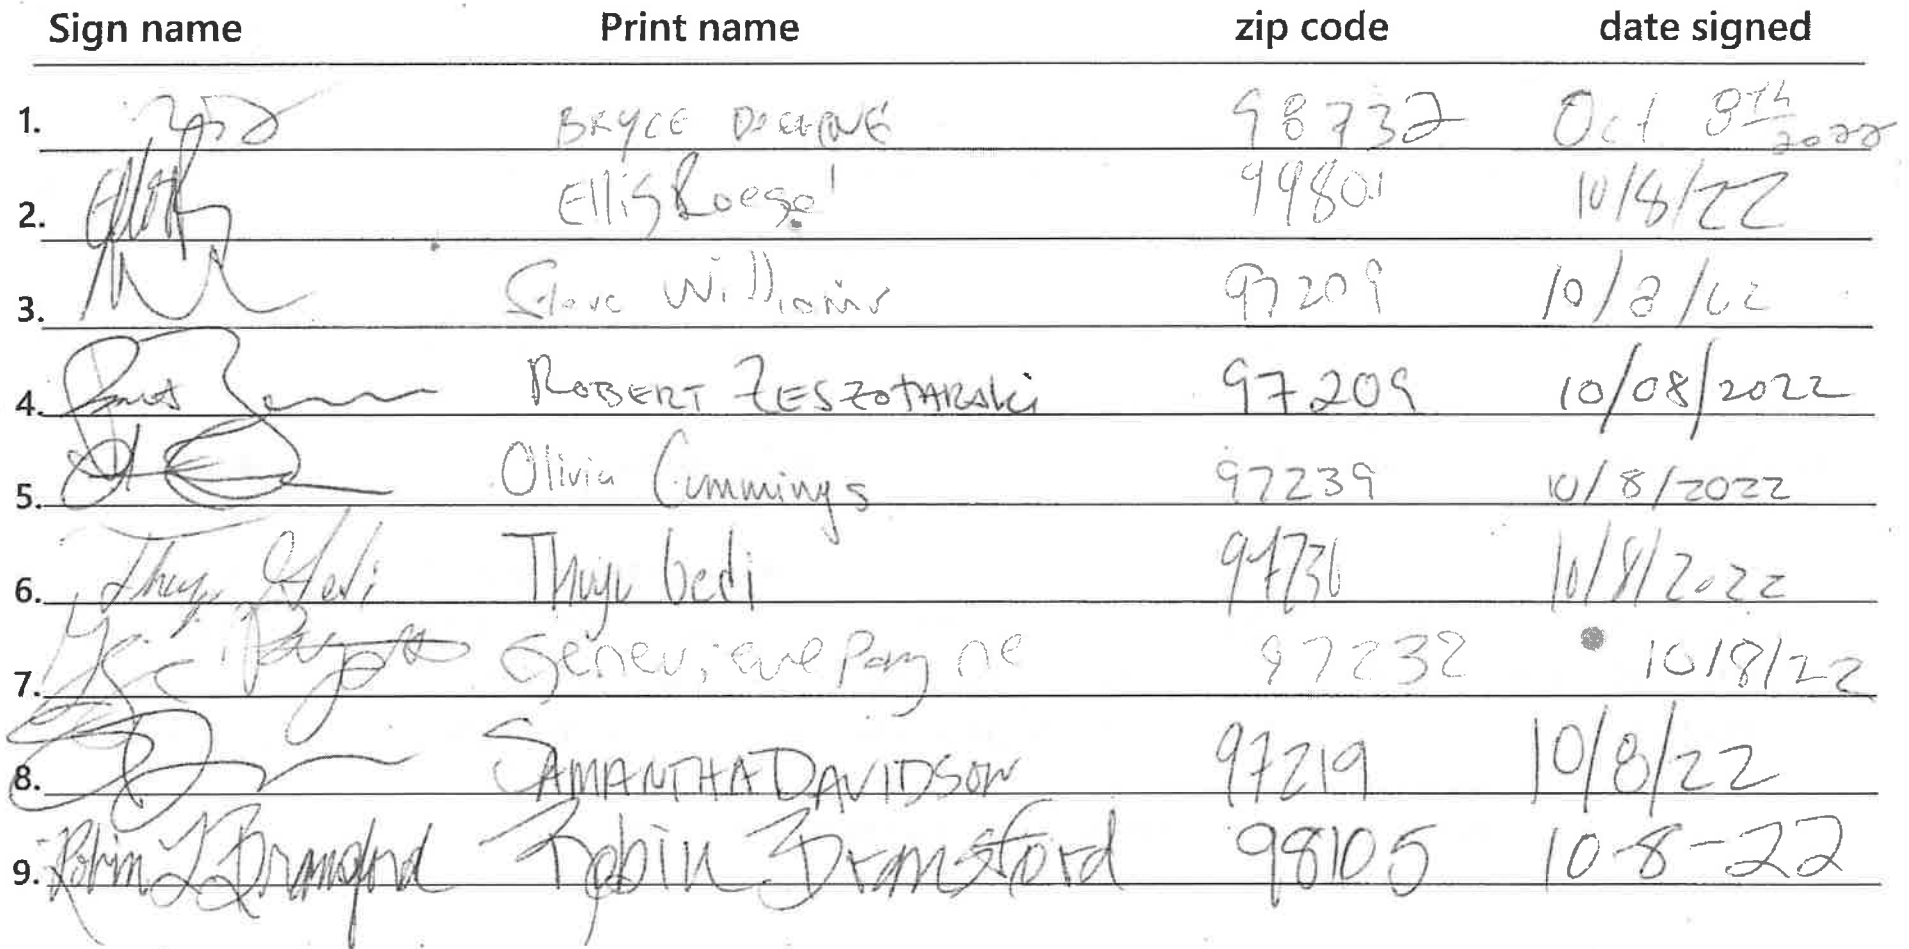 Sign name Print name zip code date signed
1. BRYCE 98732 Oct 8th 2022
2. Ellis 99801 10/8/22
3. Steve Williams 97209 10/8/22
4. ROBERT ZESZOTARSKI 97209 10/08/2022
5. Olivia Cummings 97239 10/8/2022
6. Thuy Gedi 10/8/2022
7. Genevieve Payne 97232 10/8/22
8. SAMANTHA DAVIDSON 97219 10/8/22
9. Robin L Bransford Robin Bransford 98105 10-8-22